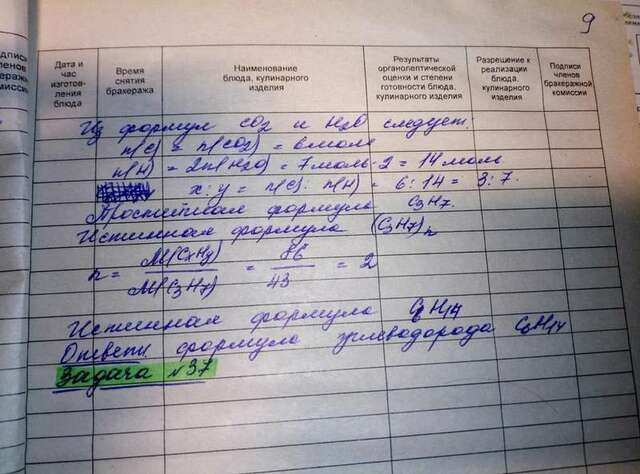 9
Дата и час изготов- ления блюда
Время снятия бракеража
Наименование блюда, кулинарного изделия
Результаты органолептической оценки и степени готовности блюда, кулинарного изделия
Разрешение к реализации блюда, кулинарного изделия
Подписи членов бракеражной комиссии
Из формул CO2 и H2O следует:
n(C) = n(CO2) = 6 моль
n(H) = 2n(H2O) = 7 моль·2 = 14 моль
x : y = n(C) : n(H) = 6 : 14 = 3 : 7.
Простейшая формула C3H7.
Истинная формула (C3H7)n
n = M(CxHy) / M(C3H7) = 86 / 43 = 2
Истинная формула C6H14
Ответ: формула углеводорода C6H14
Задача №37